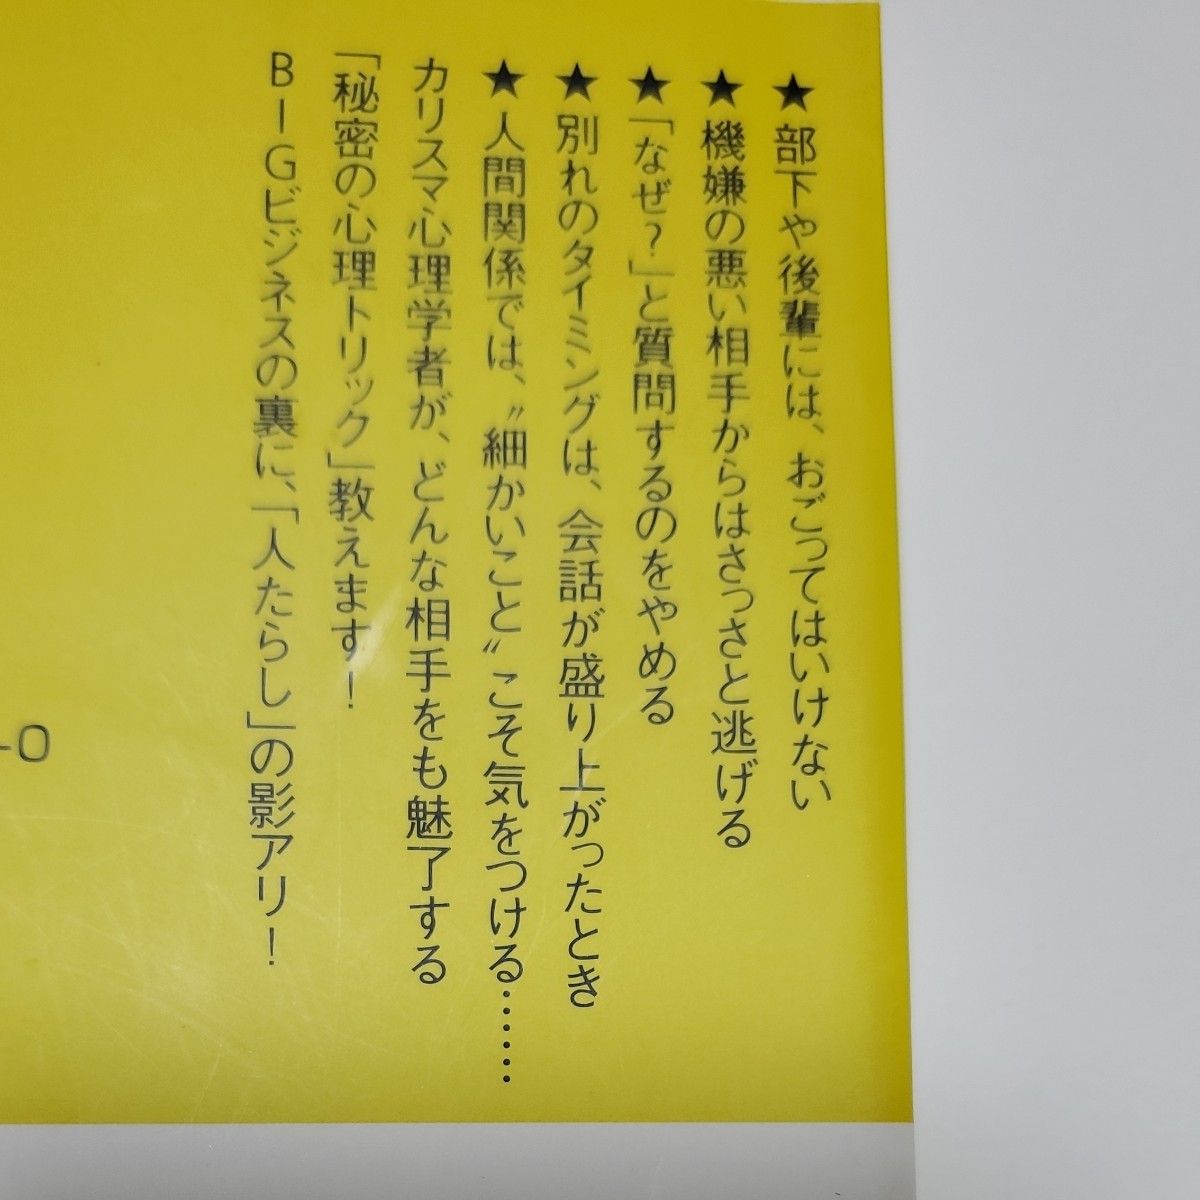 ★部下や後輩には、おごってはいけない
★機嫌の悪い相手からはさっさと逃げる
★「なぜ？」と質問するのをやめる
★別れのタイミングは、会話が盛り上がったとき
★人間関係では、〝細かいこと〟こそ気をつける……
カリスマ心理学者が、どんな相手をも魅了する
「秘密の心理トリック」教えます！
BIGビジネスの裏に、「人たらし」の影アリ！
-0